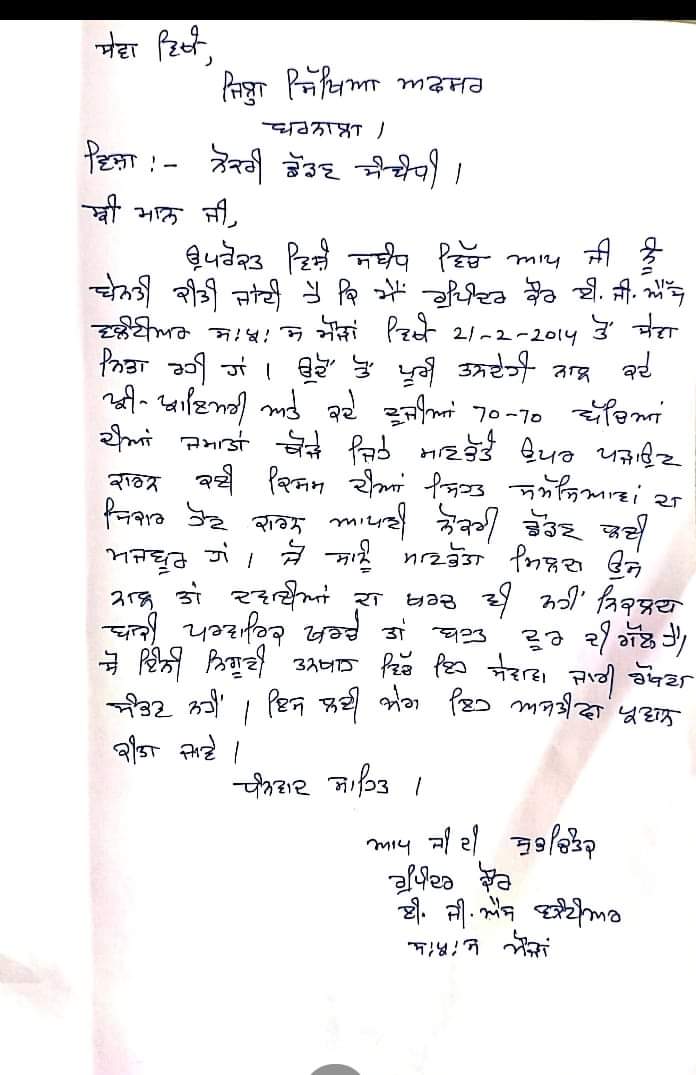 ਸੇਵਾ ਵਿਖੇ,
ਜਿਲ੍ਹਾ ਸਿੱਖਿਆ ਅਫਸਰ
ਬਰਨਾਲਾ ।
ਵਿਸ਼ਾ :- ਨੋਕਰੀ ਛੱਡਣ ਸੰਬੰਧੀ ।
ਸ਼੍ਰੀ ਮਾਨ ਜੀ,
ਉਪਰੋਕਤ ਵਿਸ਼ੇ ਸਬੰਧ ਵਿੱਚ ਆਪ ਜੀ ਨੂੰ
ਬੇਨਤੀ ਕੀਤੀ ਜਾਂਦੀ ਹੈ ਕਿ ਮੈਂ ਈ. ਜੀ. ਐੱਸ
ਵਲੰਟੀਅਰ ਸ:ਪ੍ਰ: ਸ ਮੌੜਾਂ ਵਿਖੇ 21-2-2014 ਤੋਂ ਸੇਵਾ
ਨਿਭਾ ਰਹੀ ਹਾਂ । ਉਦੋਂ ਤੋਂ ਪੂਰੀ ਤਨਦੇਹੀ ਨਾਲ ਕਦੇ
ਪ੍ਰੀ-ਪ੍ਰਾਇਮਰੀ ਅਤੇ ਕਦੇ ਦੂਜੀਆਂ 70-70 ਬੱਚਿਆਂ
ਦੀਆਂ ਜਮਾਤਾਂ ਥੋੜੇ ਜਿਹੇ ਮਾਣਭੱਤੇ ਉਪਰ ਪੜਾਉਣ
ਕਾਰਨ ਕਈ ਕਿਸਮ ਦੀਆਂ ਸਿਹਤ ਸਮੱਸਿਆਵਾਂ ਦਾ
ਸਿਕਾਰ ਹੋਣ ਕਾਰਨ ਆਪਣੀ ਨੋਕਰੀ ਛੱਡਣ ਲਈ
ਮਜਬੂਰ ਹਾਂ । ਜੋ ਸਾਨੂੰ ਮਾਣਭੱਤਾ ਮਿਲਦਾ ਉਸ
ਨਾਲ ਤਾਂ ਦਵਾਈਆਂ ਦਾ ਖਰਚ ਵੀ ਨਹੀਂ ਨਿਕਲਦਾ
ਬਾਕੀ ਪਰਵਾਰਿਕ ਖਰਚੇ ਤਾਂ ਬਹੁਤ ਦੂਰ ਦੀ ਗੱਲ ਹੈ।
ਸੋ ਇੰਨੀ ਨਿਗੂਣੀ ਤਨਖਾਹ ਵਿੱਚ ਇਹ ਸੇਵਾਵਾਂ ਜਾਰੀ ਰੱਖਣਾ
ਨਹੀਂ । ਇਸ ਲਈ ਮੇਰਾ ਇਹ ਅਸਤੀਫਾ ਪ੍ਰਵਾਨ
ਕੀਤਾ ਜਾਵੇ ।
ਧੰਨਵਾਦ ਸਾਹਿਤ ।
ਆਪ ਜੀ ਦੀ ਸ਼ੁਭਚਿੰਤਕ
ਕੌਰ
ਈ. ਜੀ. ਐੱਸ ਵਲੰਟੀਅਰ
ਸ:ਪ੍ਰ: ਸ ਮੌੜਾਂ